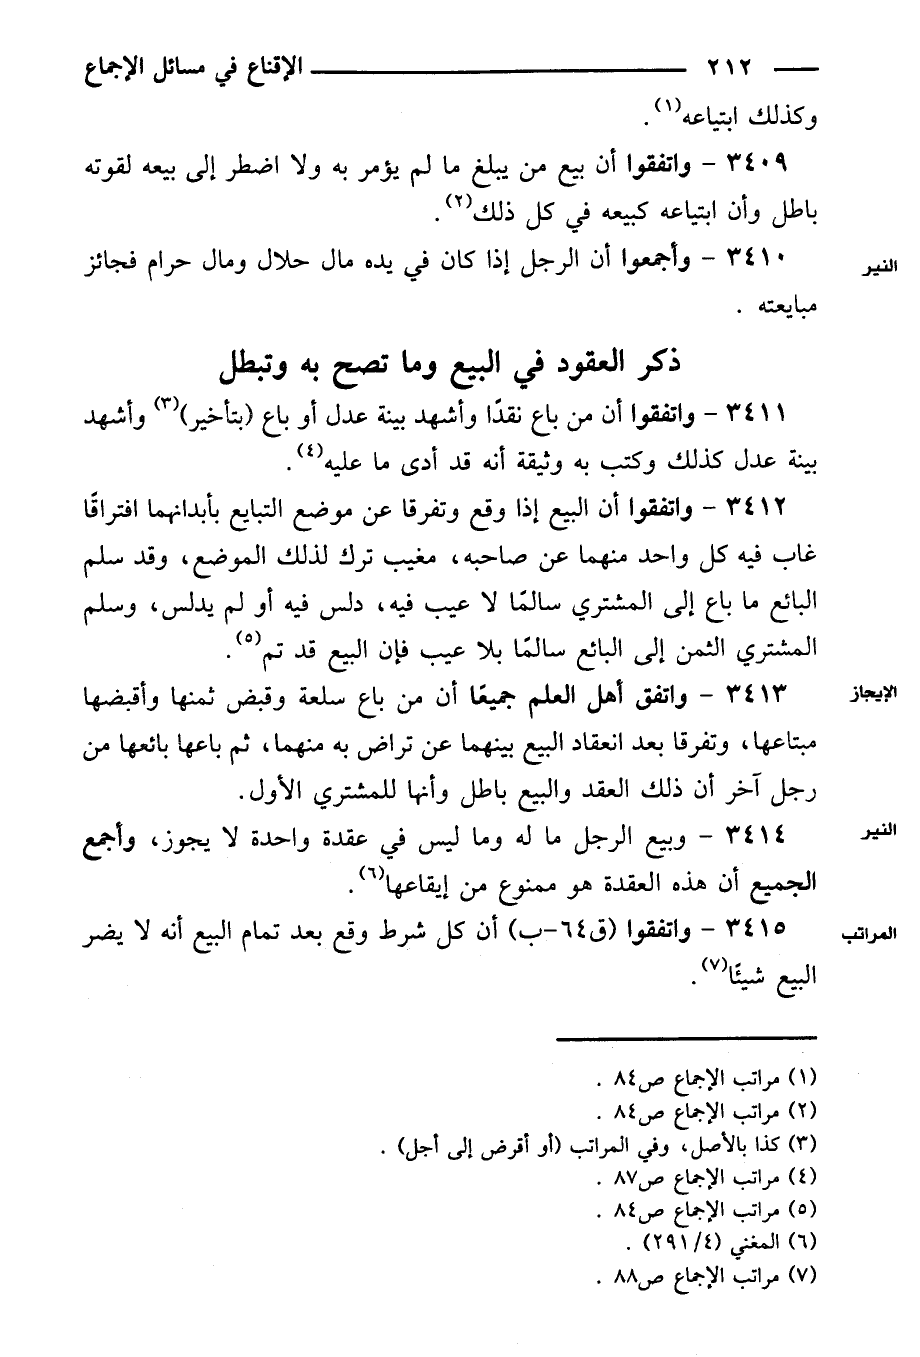 ٢١٢ الإقناع في مسائل الإجماع
وكذلك ابتياعه(١).
٣٤٠٩ - واتفقوا أن بيع من يبلغ ما لم يؤمر به ولا اضطر إلى بيعه لقوته
باطل وأن ابتياعه كبيعه في كل ذلك(٢).
النير ٣٤١٠ - وأجمعوا أن الرجل إذا كان في يده مال حلال ومال حرام فجائز
مبايعته .
ذكر العقود في البيع وما تصح به وتبطل
٣٤١١ - واتفقوا أن من باع نقدًا وأشهد بينة عدل أو باع (بتأخير)(٣) وأشهد
بينة عدل كذلك وكتب به وثيقة أنه قد أدى ما عليه(٤).
٣٤١٢ - واتفقوا أن البيع إذا وقع وتفرقا عن موضع التبايع بأبدانهما افتراقًا
غاب فيه كل واحد منهما عن صاحبه، مغيب ترك لذلك الموضع، وقد سلم
البائع ما باع إلى المشتري سالمًا لا عيب فيه، دلس فيه أو لم يدلس، وسلم
المشتري الثمن إلى البائع سالمًا بلا عيب فإن البيع قد تم(٥).
الإيجاز ٣٤١٣ - واتفق أهل العلم جميعًا أن من باع سلعة وقبض ثمنها وأقبضها
مبتاعها، وتفرقا بعد انعقاد البيع بينهما عن تراض به منهما، ثم باعها بائعها من
رجل آخر أن ذلك العقد والبيع باطل وأنها للمشتري الأول.
النير ٣٤١٤ - وبيع الرجل ما له وما ليس في عقدة واحدة لا يجوز، وأجمع
الجميع أن هذه العقدة هو ممنوع من إيقاعها(٦).
المراتب ٣٤١٥ - واتفقوا (ق٦٤-ب) أن كل شرط وقع بعد تمام البيع أنه لا يضر
البيع شيئًا(٧).
(١) مراتب الإجماع ص٨٤ .
(٢) مراتب الإجماع ص٨٤ .
(٣) كذا بالأصل، وفي المراتب (أو أقرض إلى أجل) .
(٤) مراتب الإجماع ص٨٧ .
(٥) مراتب الإجماع ص٨٤ .
(٦) المغني (٢٩١/٤) .
(٧) مراتب الإجماع ص٨٨ .